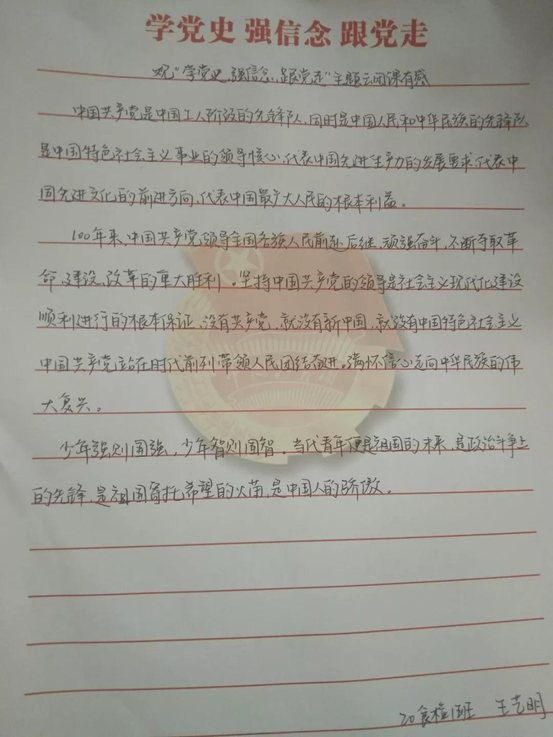 学党史 强信念 跟党走
观“学党史、强信念、跟党走”主题云团课有感
中国共产党是中国工人阶级的先锋队,同时是中国人民和中华民族的先锋队
是中国特色社会主义事业的领导核心,代表中国先进生产力的发展要求,代表中
国先进文化的前进方向,代表中国最广大人民的根本利益。
100年来,中国共产党领导全国各族人民前赴后继、顽强奋斗,不断夺取革
命、建设、改革的重大胜利。坚持中国共产党的领导是社会主义现代化建设
顺利进行的根本保证,没有共产党,就没有新中国,就没有中国特色社会主义
中国共产党站在时代前列带领人民团结奋进,满怀信心走向中华民族的伟
大复兴。
少年强则国强,少年智则国智。当代青年便是祖国的未来,是政治斗争上
的先锋,是祖国寄托希望的火苗,是中国人的骄傲。
20食检1班 王艺明